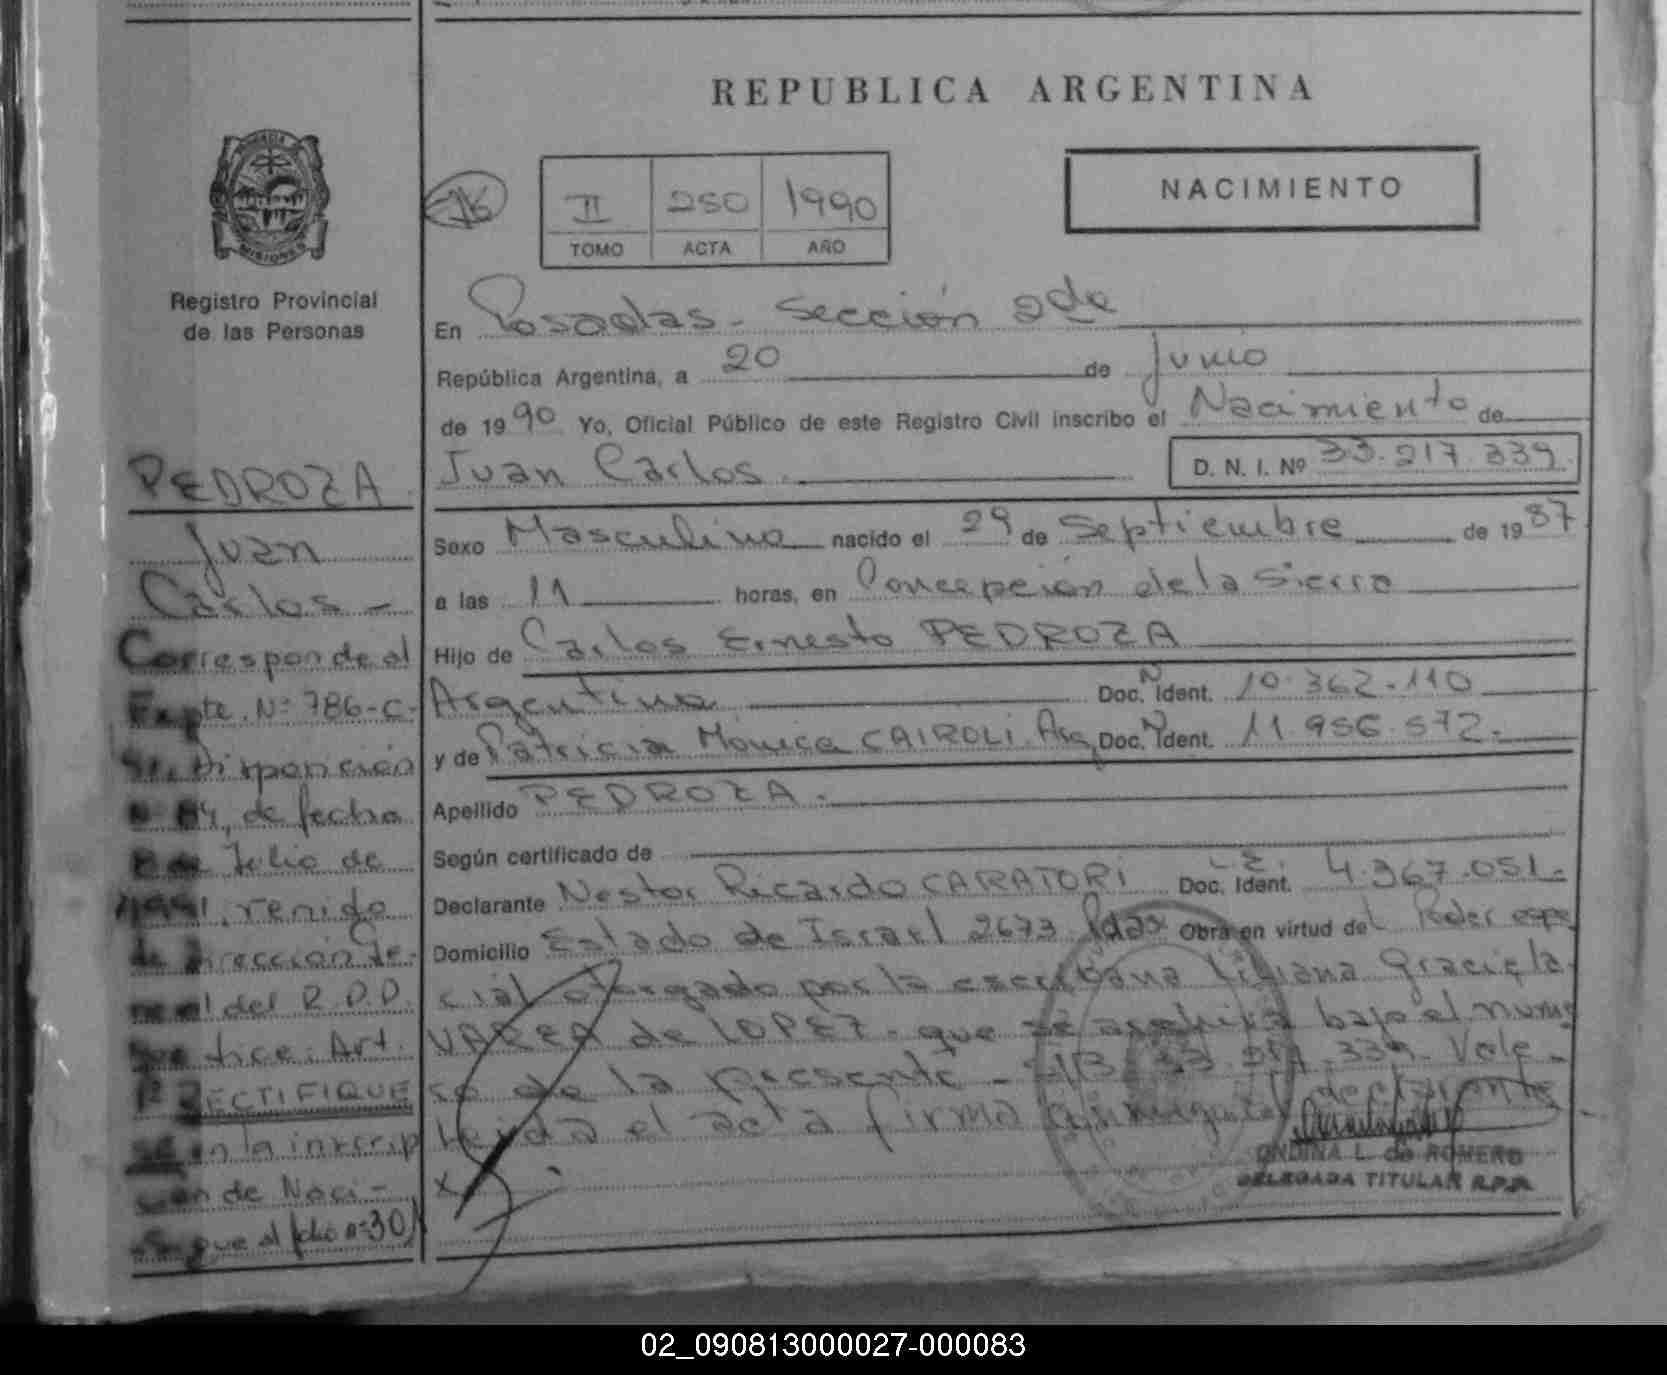 REPUBLICA ARGENTINA
PROVINCIA
MISIONES
Registro Provincial
de las Personas
76
II 250 1990
TOMO ACTA AÑO
NACIMIENTO
En Posadas - Sección 2da
República Argentina, a 20 de Junio
de 1990 Yo, Oficial Público de este Registro Civil inscribo el Nacimiento de
Juan Carlos. D. N. I. Nº 33.217.339
Sexo Masculino nacido el 29 de Septiembre de 1987
a las 11 horas, en Concepción de la Sierra
Hijo de Carlos Ernesto PEDROZA
Argentino Doc. N Ident. 10.362.110
y de Patricia Mónica CAIROLI. Arg. Doc. N Ident. 11.956.572.
Apellido PEDROZA.
Según certificado de
Declarante Nestor Ricardo CARATORI Doc. Ident. L.E. 4.367.051.-
Domicilio Estado de Israel 2673 Pdas Obra en virtud del Poder espe
cial otorgado por la escribana Liliana Graciela
VAREA de LOPEZ. que se archiva bajo el nume
ro de la presente - 33.217.339. Vale.
leída el acta firma conmigo el declarante
ONDINA L. de ROMERO
DELEGADA TITULAR R.P.P.
PEDROZA
Juan
Carlos -
Corresponde al
Expte. Nº 786-C-
Disposición
Nº 84, de fecha
8 de Julio de
1991, venido
de Dirección Ge-
neral del R.P.P.
que dice: Art.
1º RECTIFIQUE
SE en la inscrip
ción de Naci-
Sigue al folio nº 30
02_090813000027-000083